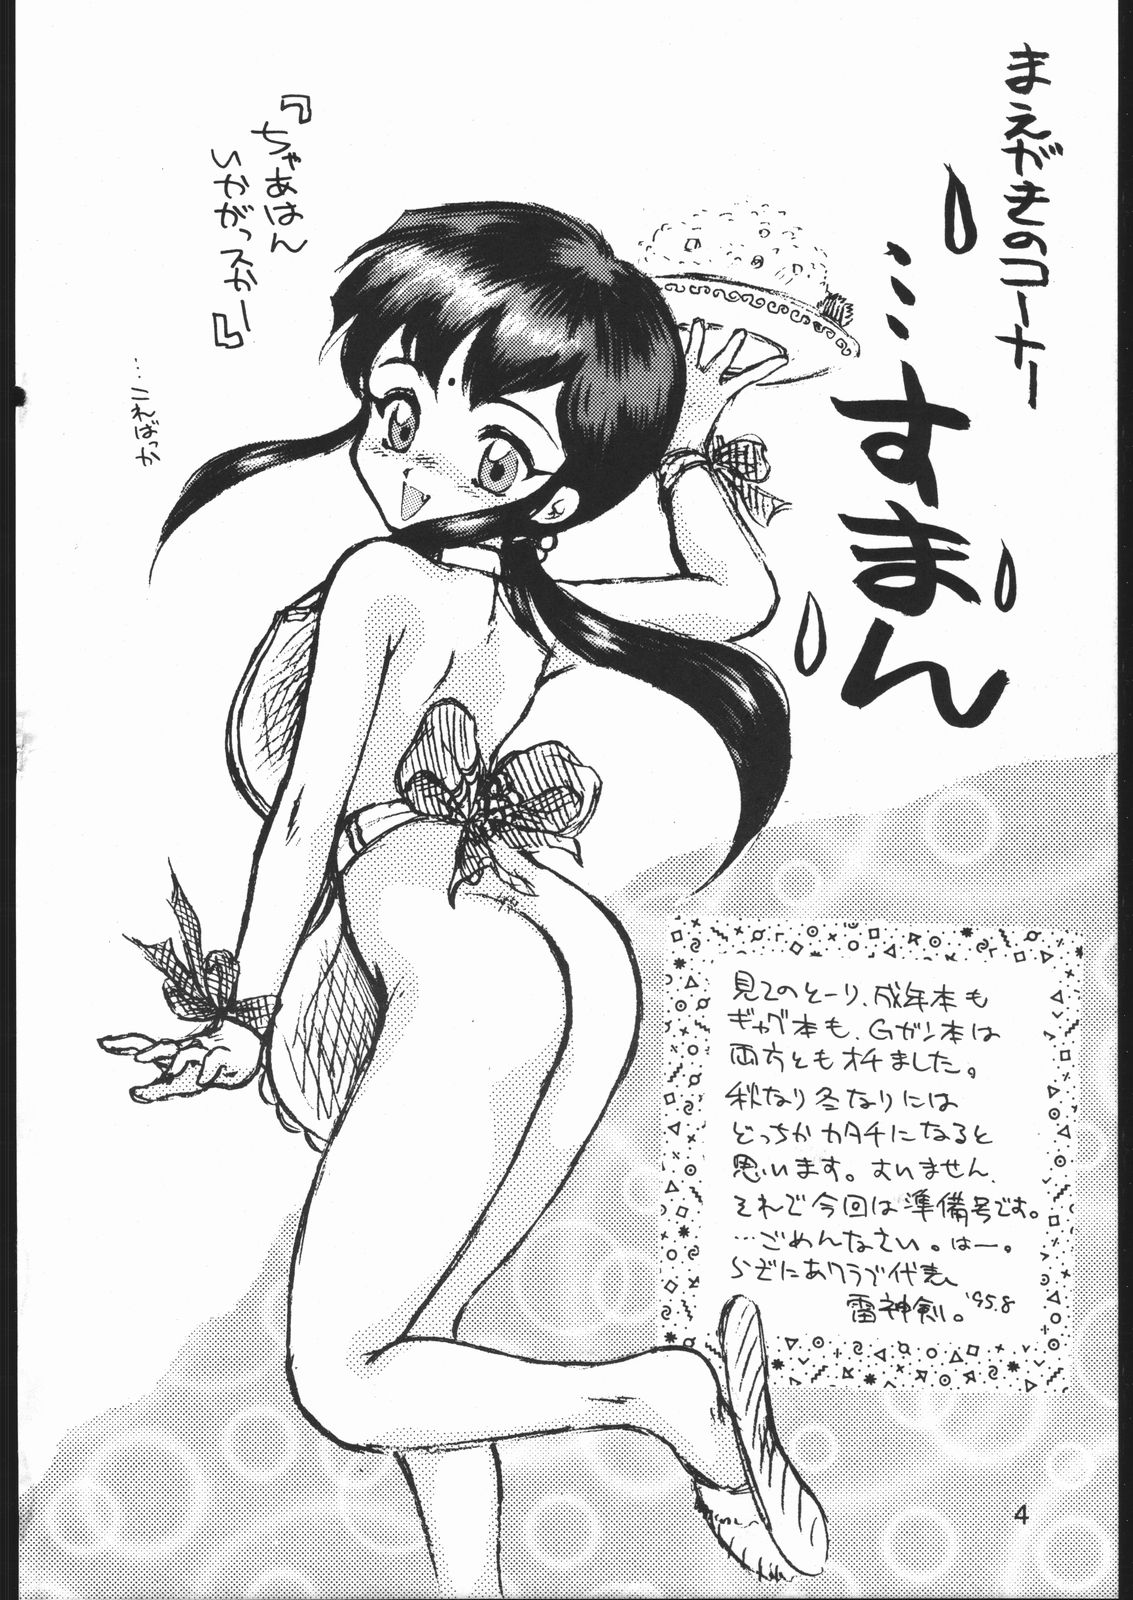 まえがきのコーナー
…すまん
『ちゃあはん
いかがっスかー』
…こればっか
見てのとーり、成年本も
ギャグ本も、Gガン本は
両方ともオチました。
秋なり冬なりには
どっちかカタチになると
思います。すいません
それで今回は準備号です。
…ごめんなさい。はー。
らぞにあクラブ代表
雷神剣。'95.8
4